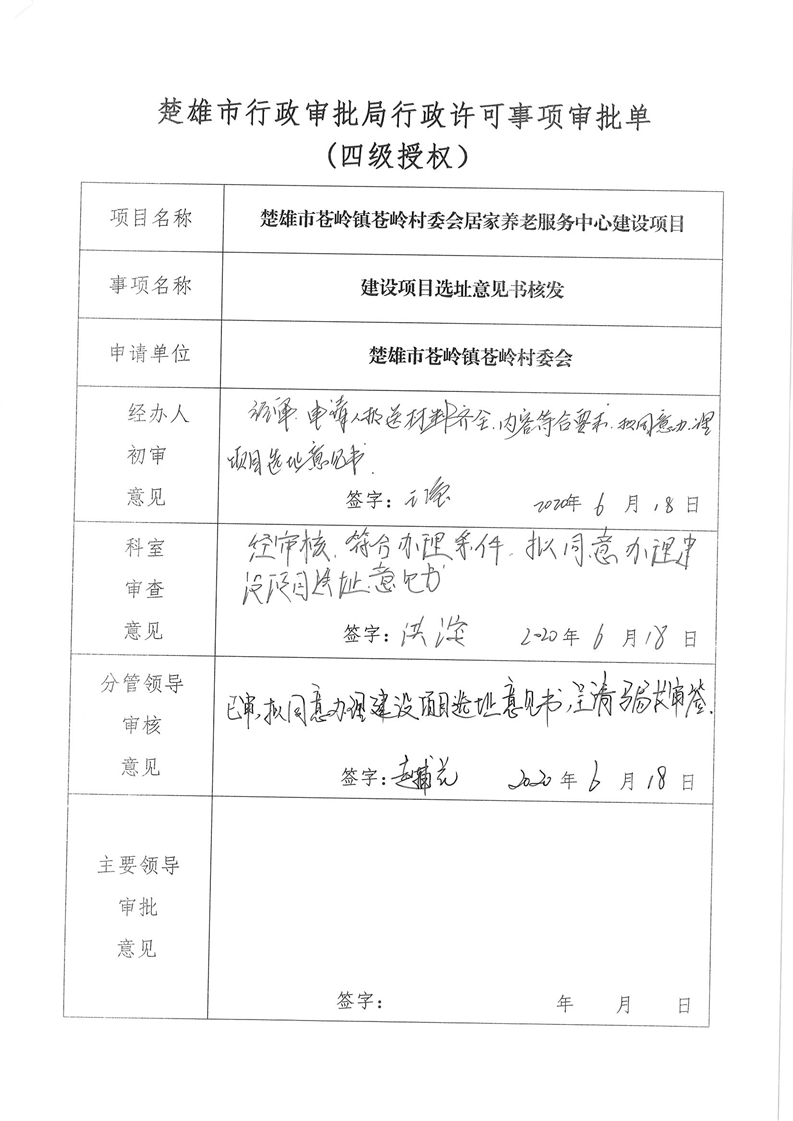 楚雄市行政审批局行政许可事项审批单
（四级授权）
项目名称 楚雄市苍岭镇苍岭村委会居家养老服务中心建设项目
事项名称 建设项目选址意见书核发
申请单位 楚雄市苍岭镇苍岭村委会
经办人
初审
意见
经审，申请人报送材料齐全，内容符合要求，拟同意办理
项目选址意见书.
签字： 2020年 6 月 18 日
科室
审查
意见
经审核，符合办理条件，拟同意办理建
设项目选址意见书
签字：洪 2020年 6 月 18 日
分管领导
审核
意见
已审，拟同意办理建设项目选址意见书，呈请马局长审签.
签字： 2020 年 6 月 18 日
主要领导
审批
意见
签字： 年 月 日